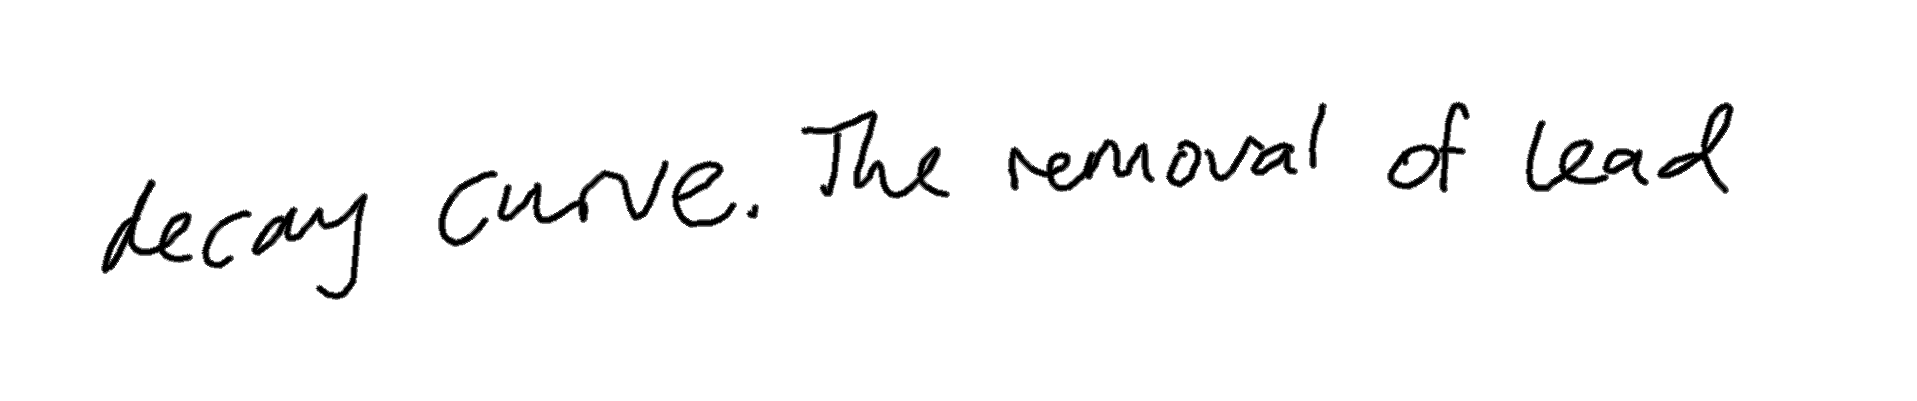 decay curve. The removal of lead